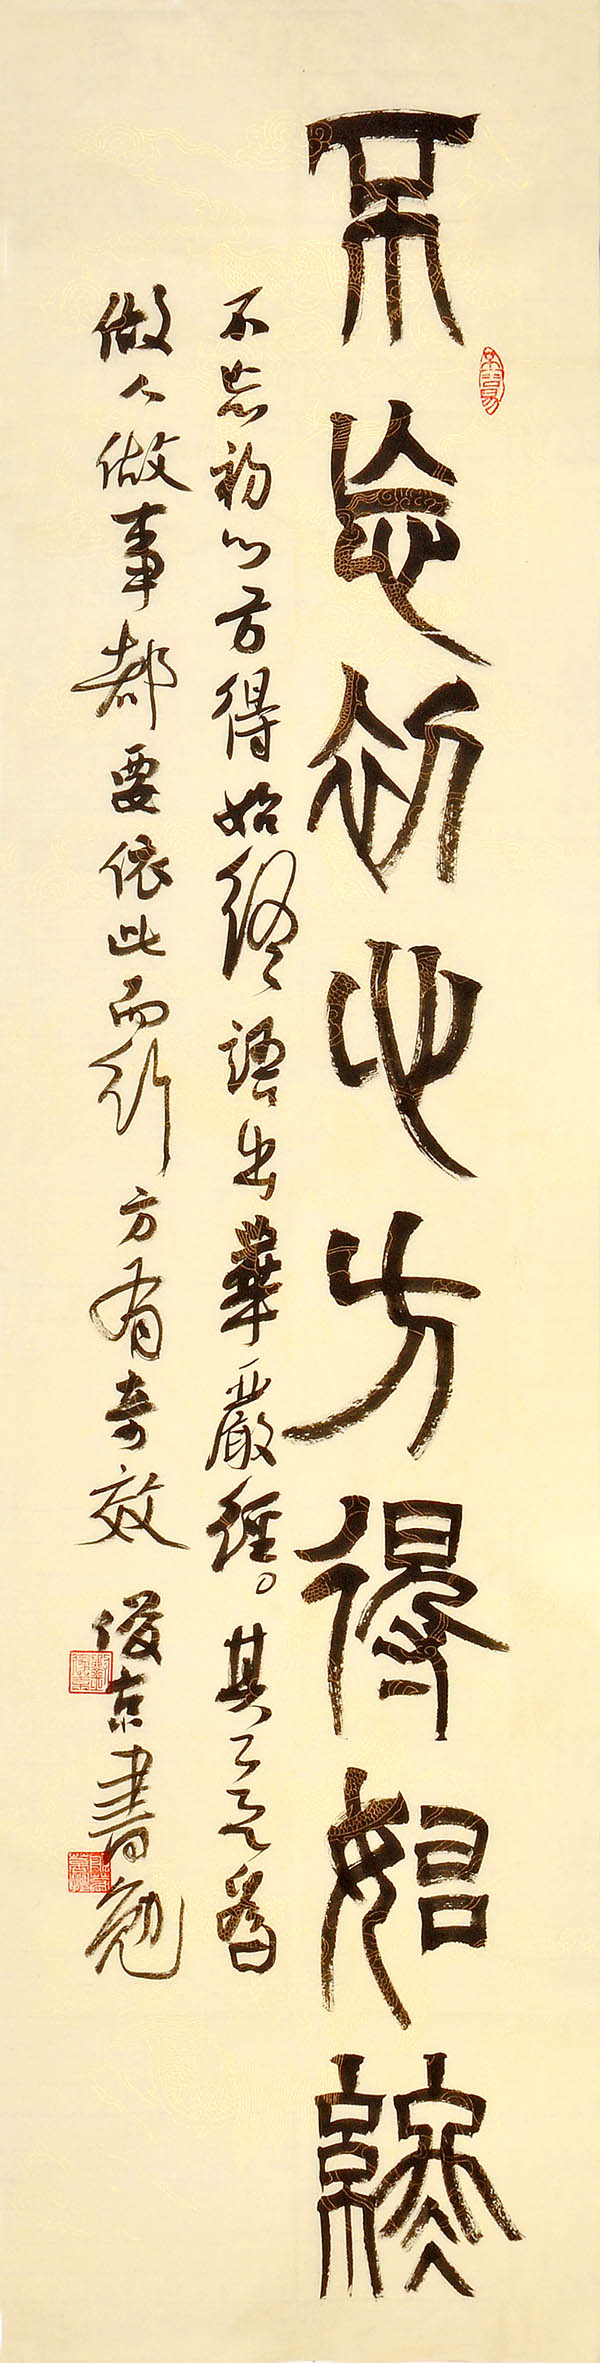 不忘初心方得始終
不忘初心方得始終語出華嚴經。其意為
做人做事都要依此而行方有奇效 俊京書勉